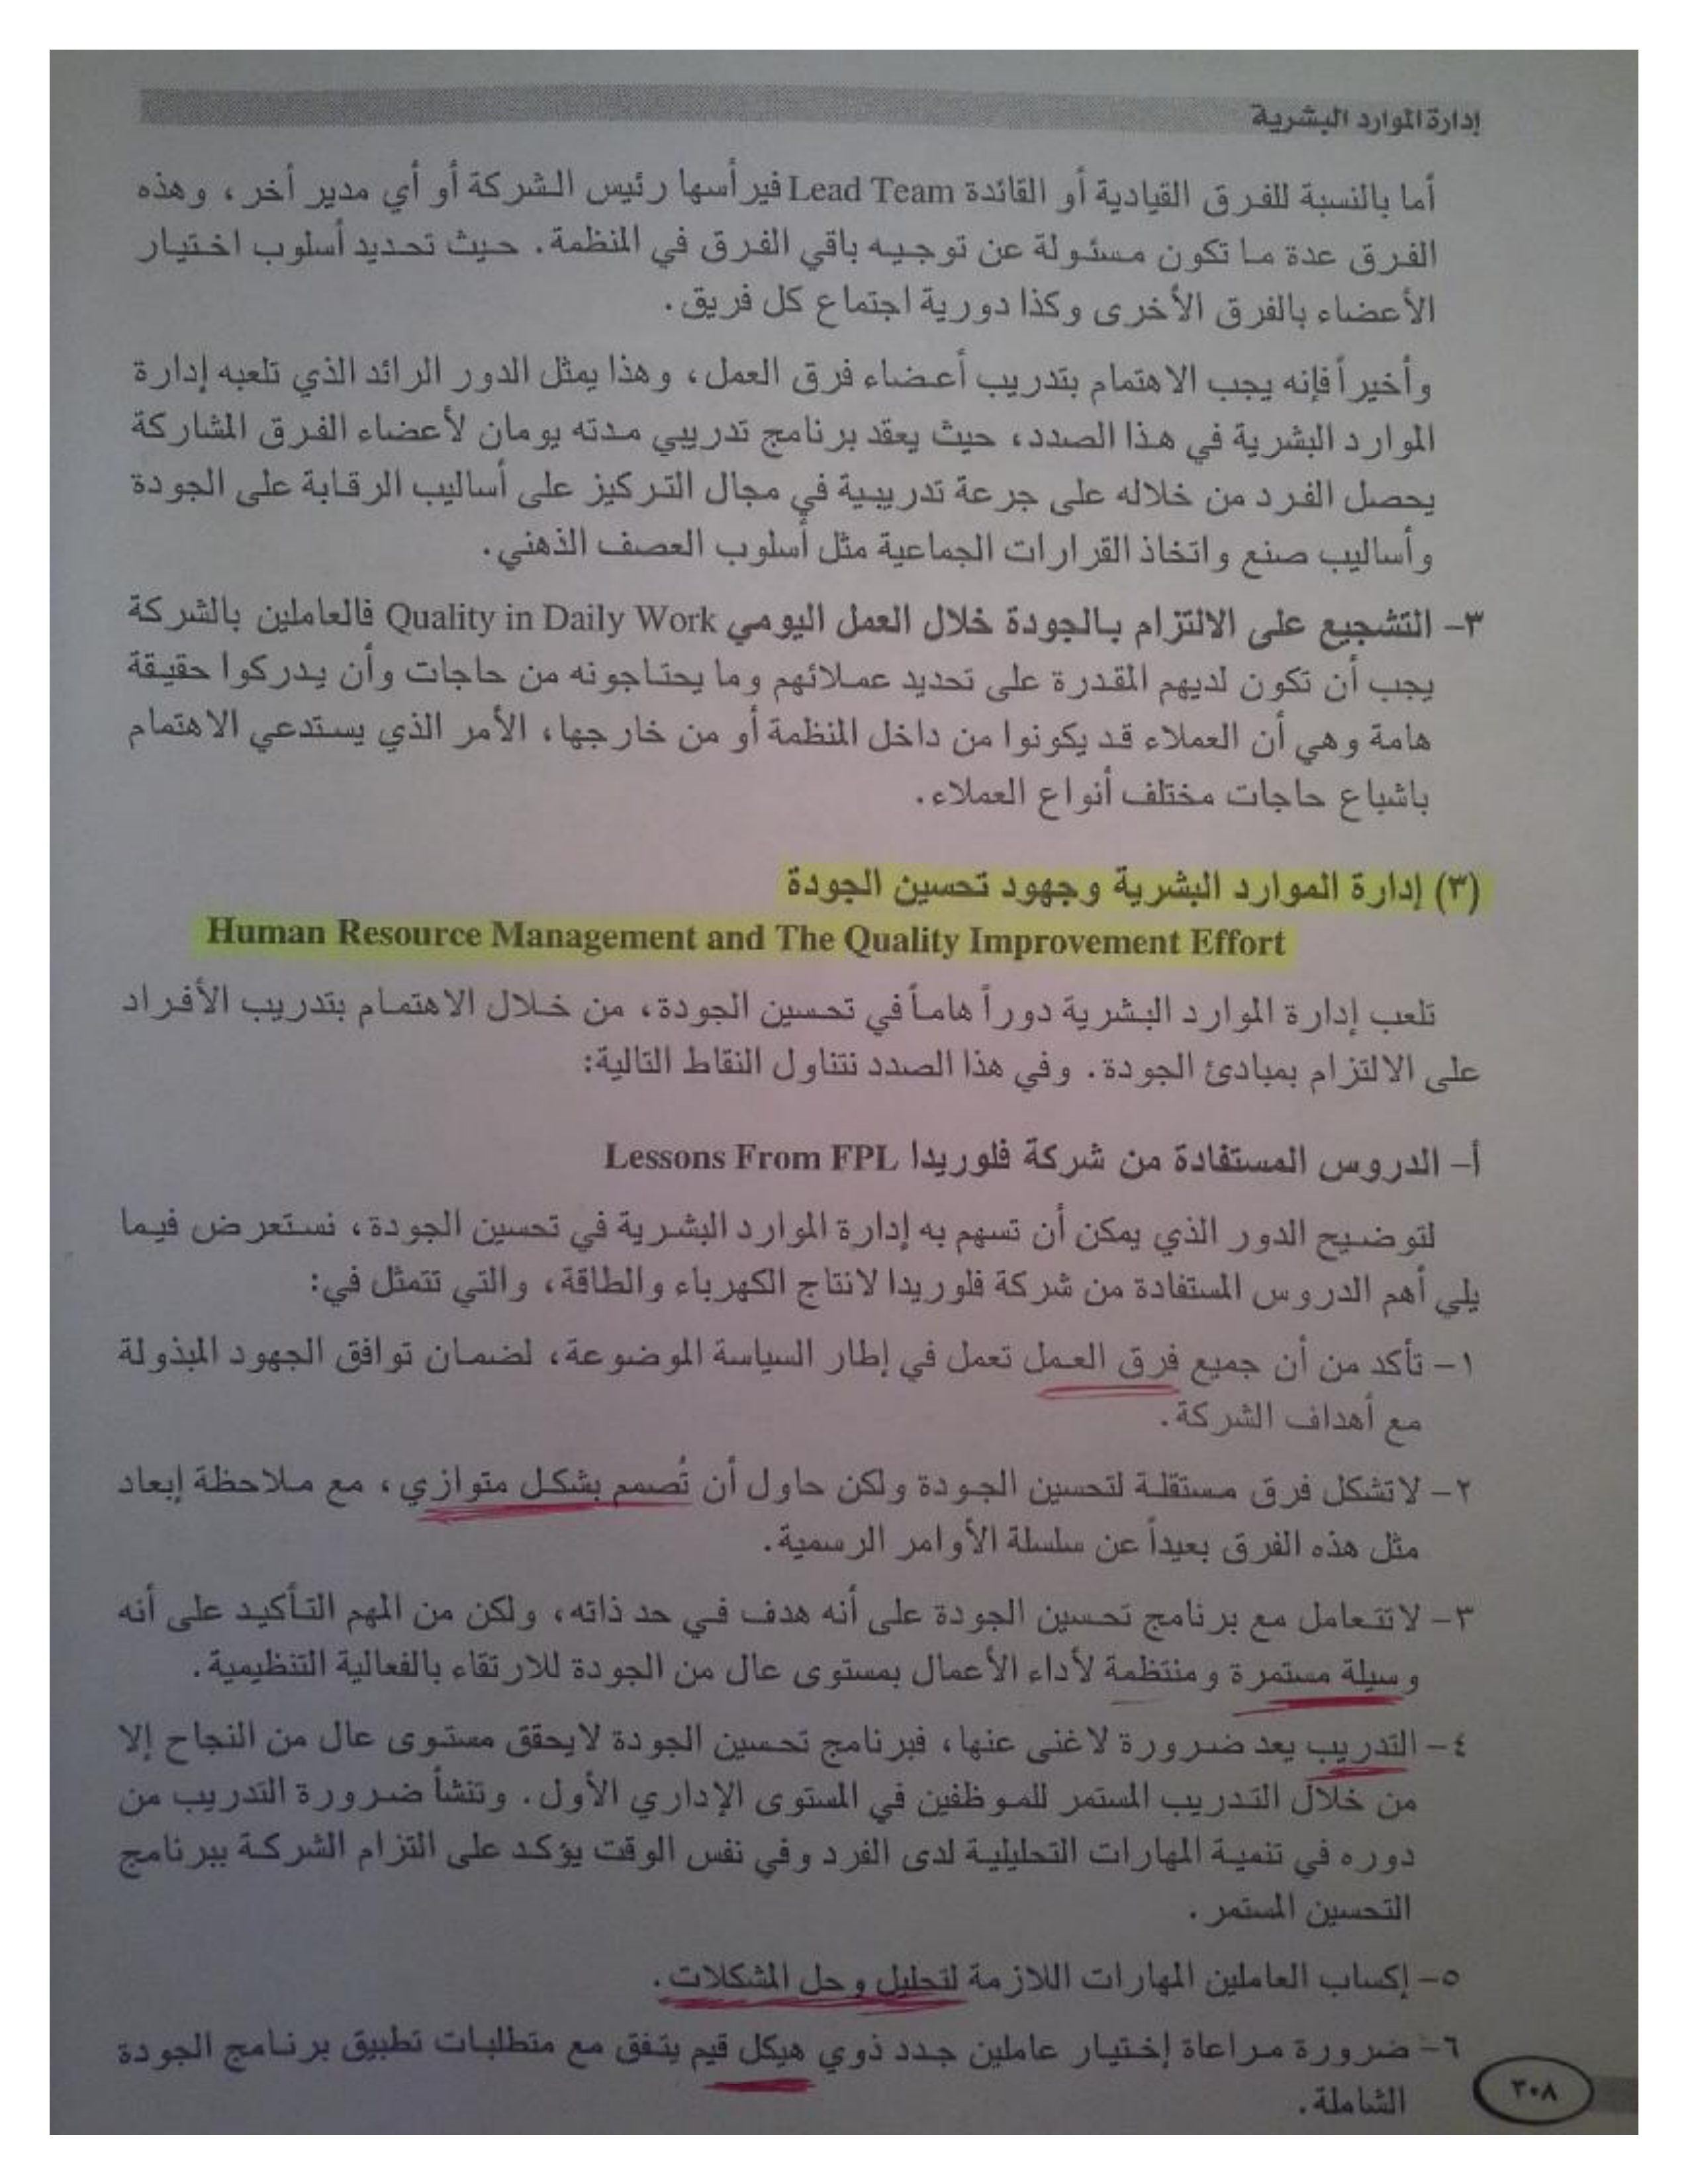 إدارة الموارد البشرية
أما بالنسبة للفرق القيادية أو القائدة Lead Team فيرأسها رئيس الشركة أو أي مدير أخر، وهذه
الفرق عدة ما تكون مسئولة عن توجيه باقي الفرق في المنظمة. حيث تحديد أسلوب اختيار
الأعضاء بالفرق الأخرى وكذا دورية اجتماع كل فريق.
وأخيراً فإنه يجب الاهتمام بتدريب أعضاء فرق العمل، وهذا يمثل الدور الرائد الذي تلعبه إدارة
الموارد البشرية في هذا الصدد، حيث يعقد برنامج تدريبي مدته يومان لأعضاء الفرق المشاركة
يحصل الفرد من خلاله على جرعة تدريبية في مجال التركيز على أساليب الرقابة على الجودة
وأساليب صنع واتخاذ القرارات الجماعية مثل أسلوب العصف الذهني.
٣- التشجيع على الالتزام بالجودة خلال العمل اليومي Quality in Daily Work فالعاملين بالشركة
يجب أن تكون لديهم المقدرة على تحديد عملائهم وما يحتاجونه من حاجات وأن يدركوا حقيقة
هامة وهي أن العملاء قد يكونوا من داخل المنظمة أو من خارجها، الأمر الذي يستدعي الاهتمام
باشباع حاجات مختلف أنواع العملاء.
(٣) إدارة الموارد البشرية وجهود تحسين الجودة
Human Resource Management and The Quality Improvement Effort
تلعب إدارة الموارد البشرية دوراً هاماً في تحسين الجودة، من خلال الاهتمام بتدريب الأفراد
على الالتزام بمبادئ الجودة. وفي هذا الصدد نتناول النقاط التالية:
أ- الدروس المستفادة من شركة فلوريدا Lessons From FPL
لتوضيح الدور الذي يمكن أن تسهم به إدارة الموارد البشرية في تحسين الجودة، نستعرض فيما
يلي أهم الدروس المستفادة من شركة فلوريدا لانتاج الكهرباء والطاقة، والتي تتمثل في:
١- تأكد من أن جميع فرق العمل تعمل في إطار السياسة الموضوعة، لضمان توافق الجهود المبذولة
مع أهداف الشركة.
٢- لاتشكل فرق مستقلة لتحسين الجودة ولكن حاول أن تُصمم بشكل متوازي، مع ملاحظة إبعاد
مثل هذه الفرق بعيداً عن سلسلة الأوامر الرسمية.
٣- لاتتعامل مع برنامج تحسين الجودة على أنه هدف في حد ذاته، ولكن من المهم التأكيد على أنه
وسيلة مستمرة ومنتظمة لأداء الأعمال بمستوى عال من الجودة للارتقاء بالفعالية التنظيمية.
٤- التدريب يعد ضرورة لاغنى عنها، فبرنامج تحسين الجودة لايحقق مستوى عال من النجاح إلا
من خلال التدريب المستمر للموظفين في المستوى الإداري الأول. وتنشأ ضرورة التدريب من
دوره في تنمية المهارات التحليلية لدى الفرد وفي نفس الوقت يؤكد على التزام الشركة ببرنامج
التحسين المستمر.
٥- إكساب العاملين المهارات اللازمة لتحليل وحل المشكلات.
٦- ضرورة مراعاة إختيار عاملين جدد ذوي هيكل قيم يتفق مع متطلبات تطبيق برنامج الجودة
الشاملة.
٣٠٨